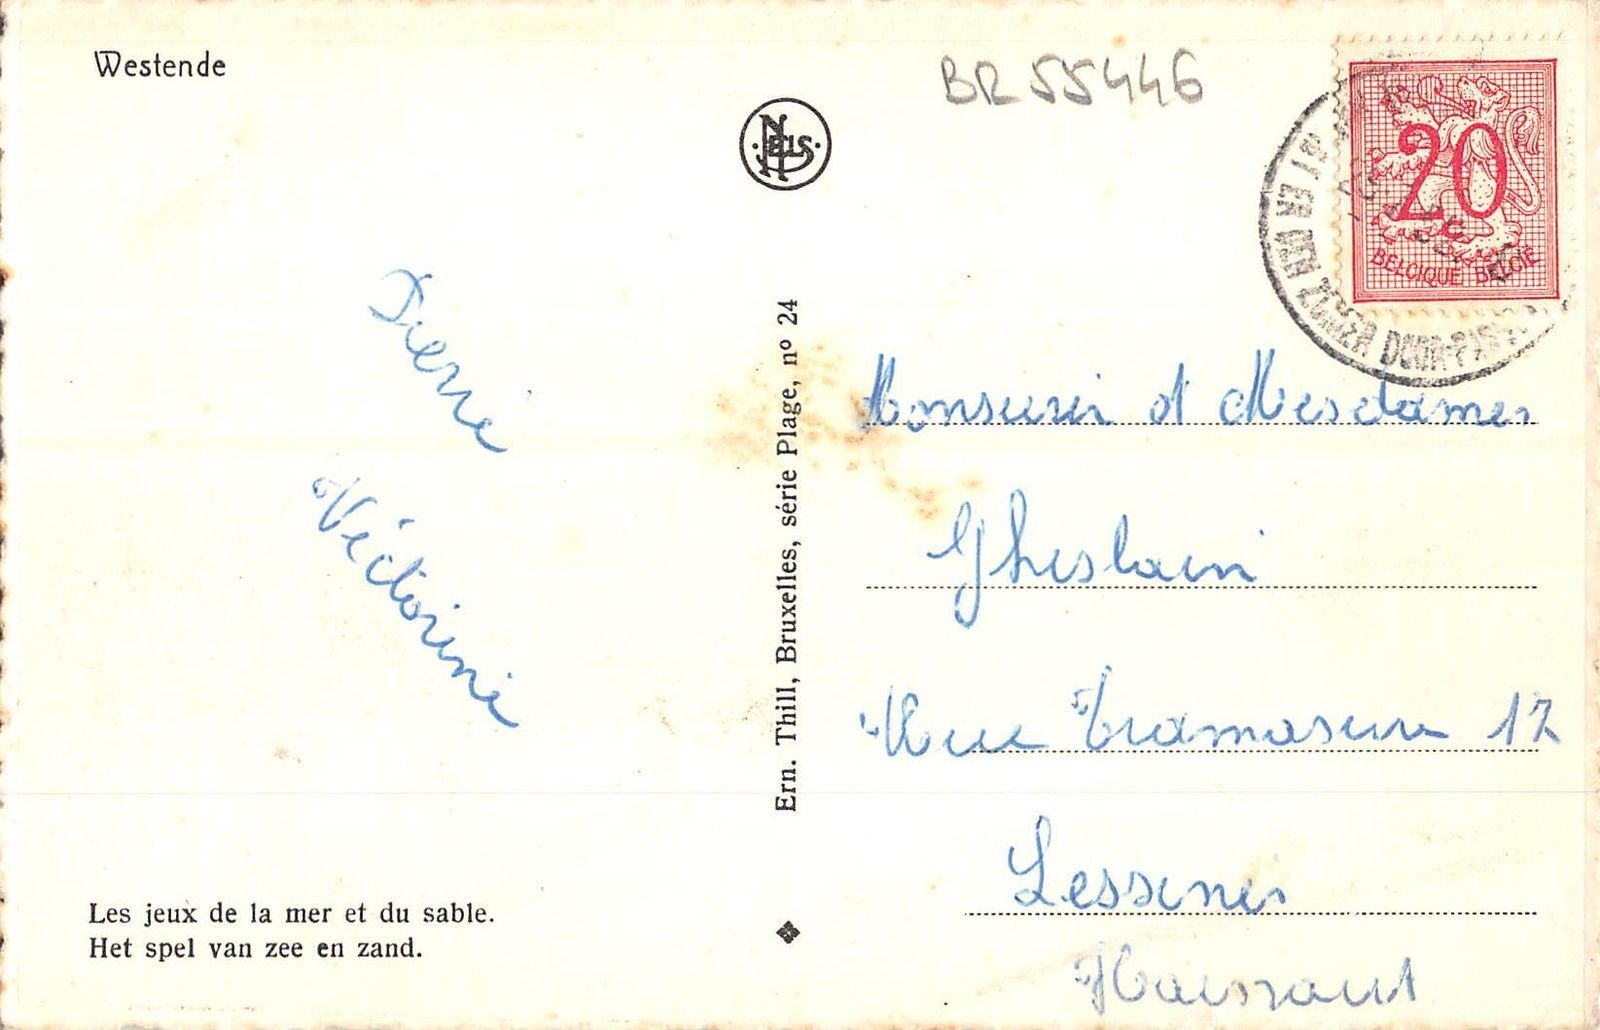 Westende
BR 55446
NELS
20
BELGIQUE BELGIË
Pierre
Victorine
Ern. Thill, Bruxelles, série Plage, nº 24
Monsieur et Mesdames
Ghislain
Rue Tramasure 17
Lessines
Hainaut
Les jeux de la mer et du sable.
Het spel van zee en zand.